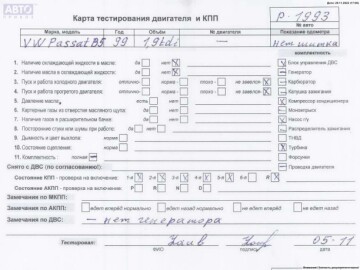 АВТО
Карта тестирования двигателя и КПП
Р-1993
№ авто
Марка, модель Год Объём № двигателя Показание одометра
VW Passat B5 99 1,9tdi — нет щитка
комплектность
1. Наличие охлаждающей жидкости в масле: да нет
2. Наличие масла в охлаждающей жидкости: да нет
3. Пуск и работа холодного двигателя: отлично нормально плохо не завелся
4. Пуск и работа прогретого двигателя: отлично нормально плохо не завелся
5. Давление масла: есть нет
6. Картерные газы из отверстия масляного щупа: да нет
7. Наличие течи масла: да нет
8. Посторонние стуки или шумы при работе: да нет
9. Дымность и цвет выхлопа: норма нет
10. Состояние сцепления: норма нет
11. Комплектность: полная нет
Блок управления ДВС
Генератор
Карбюратор
Катушка зажигания
Компрессор кондиционера
Моновпрыск
Насос гу
Распределитель зажигания
ТНВД
Турбина
Форсунки
Проводка двигателя
Снято с ДВС (по согласованию):
Состояние КПП - проверка на включение: 1-я 2-я 3-я 4-я 5-я 6-я R
Состояние АКПП - проверка на включение: P R N D
Замечания по МКПП:
Замечания по АКПП: нет едет вперёд нормально не едет вперёд едет назад нормально не едет назад
Замечания по ДВС: — нет генератора
Тестировал:
05-11
ФИО подпись дата